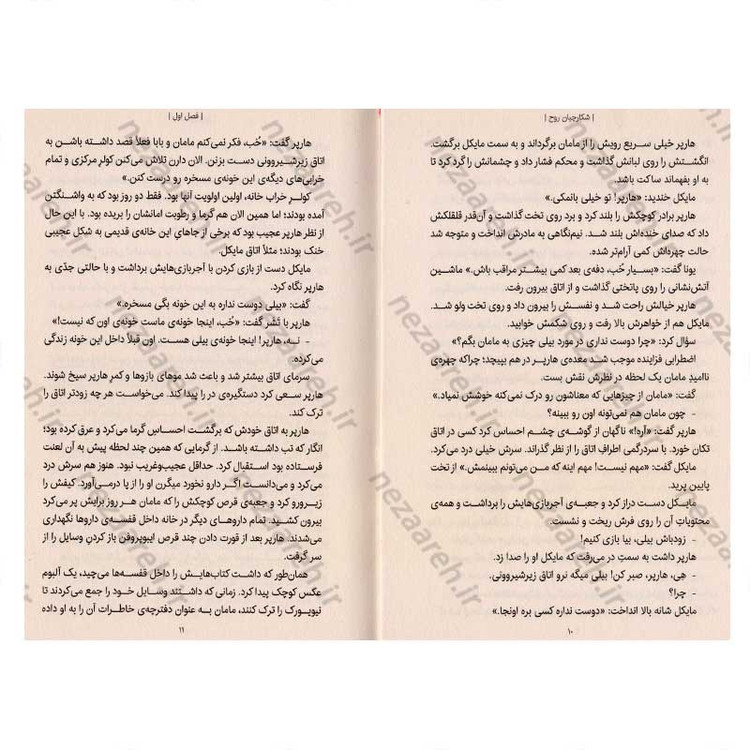 | شکارچیان روح |
هارپر خیلی سریع رویش را از مامان برگرداند و به سمت مایکل برگشت.
انگشتش را روی لبانش گذاشت و محکم فشار داد و چشمانش را گرد کرد تا
به او بفهماند ساکت باشد.
مایکل خندید: «هارپر! تو خیلی بانمکی.»
هارپر برادر کوچکش را بلند کرد و برد روی تخت گذاشت و آن‌قدر قلقلکش
داد که صدای خنده‌اش بلند شد. نیم‌نگاهی به مادرش انداخت و متوجه شد
حالت چهره‌اش کمی آرام‌تر شده.
یونا گفت: «بسیار خُب، دفه‌ی بعد کمی بیشتر مراقب باش.» ماشین
آتش‌نشانی را روی پاتختی گذاشت و از اتاق بیرون رفت.
هارپر خیالش راحت شد و نفسش را بیرون داد و روی تخت ولو شد.
مایکل هم از خواهرش بالا رفت و روی شکمش خوابید.
سؤال کرد: «چرا دوست نداری در مورد بیلی چیزی به مامان بگم؟»
اضطرابی فزاینده موجب شد معده‌ی هارپر در هم بپیچد؛ چراکه چهره‌ی
ناامید مامان یک لحظه در نظرش نقش بست.
گفت: «مامان از چیزهایی که معناشون رو درک نمی‌کنه خوشش نمیاد.»
- چون مامان هم نمی‌تونه اون رو ببینه؟
هارپر گفت: «آره!» ناگهان از گوشه‌ی چشم احساس کرد کسی در اتاق
تکان خورد. با سردرگمی اطرافِ اتاق را از نظر گذراند. سرش خیلی درد می‌کرد.
مایکل گفت: «مهم نیست! مهم اینه که من می‌تونم ببینمش.» از تخت
پایین پرید.
مایکل دست دراز کرد و جعبه‌ی آجربازی‌هایش را برداشت و همه‌ی
محتویاتِ آن را روی فرش ریخت و نشست.
- زودباش بیلی، بیا بازی کنیم!
هارپر داشت به سمتِ در می‌رفت که مایکل او را صدا زد.
- هِی، هارپر، صبر کن! بیلی میگه نرو اتاق زیرشیروونی.
- چرا؟
مایکل شانه بالا انداخت: «دوست نداره کسی بره اونجا.»
۱۰
| فصل اول |
هارپر گفت: «خُب، فکر نمی‌کنم مامان و بابا فعلاً قصد داشته باشن به
اتاق زیرشیروونی دست بزنن. الان دارن تلاش می‌کنن کولر مرکزی و تمام
خرابی‌های دیگه‌ی این خونه‌ی مسخره رو درست کنن.»
کولر خراب خانه، اولین اولویت آنها بود. فقط دو روز بود که به واشنگتن
آمده بودند؛ اما همین الان هم گرما و رطوبت امانشان را بریده بود. با این حال
از نظر هارپر عجیب بود که برخی از جاهایِ این خانه‌ی قدیمی به شکل عجیبی
خنک بودند؛ مثلاً اتاق مایکل.
مایکل دست از بازی کردن با آجربازی‌هایش برداشت و با حالتی جدّی به
هارپر نگاه کرد.
گفت: «بیلی دوست نداره به این خونه بگی مسخره.»
هارپر با تَشَر گفت: «خُب، اینجا خونه‌ی ماست خونه‌ی اون که نیست!»
- نـه، هارپر! اینجا خونه‌ی بیلی هست. اون قبلاً داخل این خونه زندگی
می‌کرده.
سرمای اتاق بیشتر شد و باعث شد موهای بازوها و کمرِ هارپر سیخ شوند.
هارپر سعی کرد دستگیره‌ی در را پیدا کند. می‌خواست هر چه زودتر اتاق را
ترک کند.
هارپر به اتاق خودش که برگشت احساسِ گرما می‌کرد و عرق کرده بود؛
انگار که تب داشته باشد. از گرمایی که همین چند لحظه پیش به آن لعنت
فرستاده بود استقبال کرد. حداقل عجیب‌وغریب نبود. هنوز هم سرش درد
می‌کرد و می‌دانست اگر دارو نخورد میگرن او را از پا درمی‌آورد. کیفش را
زیرورو کرد و جعبه‌ی قرص کوچکش را که مامان هر روز برایش پر می‌کرد
بیرون کشید. تمام داروهای دیگر در خانه داخل قفسه‌ی داروها نگهداری
می‌شدند. هارپر بعد از قورت دادن چند قرص ایبوپروفن باز کردنِ وسایل را از
سر گرفت.
همان‌طور که داشت کتاب‌هایش را داخل قفسه‌ها می‌چید، یک آلبوم
عکس کوچک پیدا کرد. زمانی که داشتند وسایل خود را جمع می‌کردند تا
نیویورک را ترک کنند، مامان به عنوان دفترچه‌ی خاطرات آن را به او داده
۱۱
nezaareh.ir